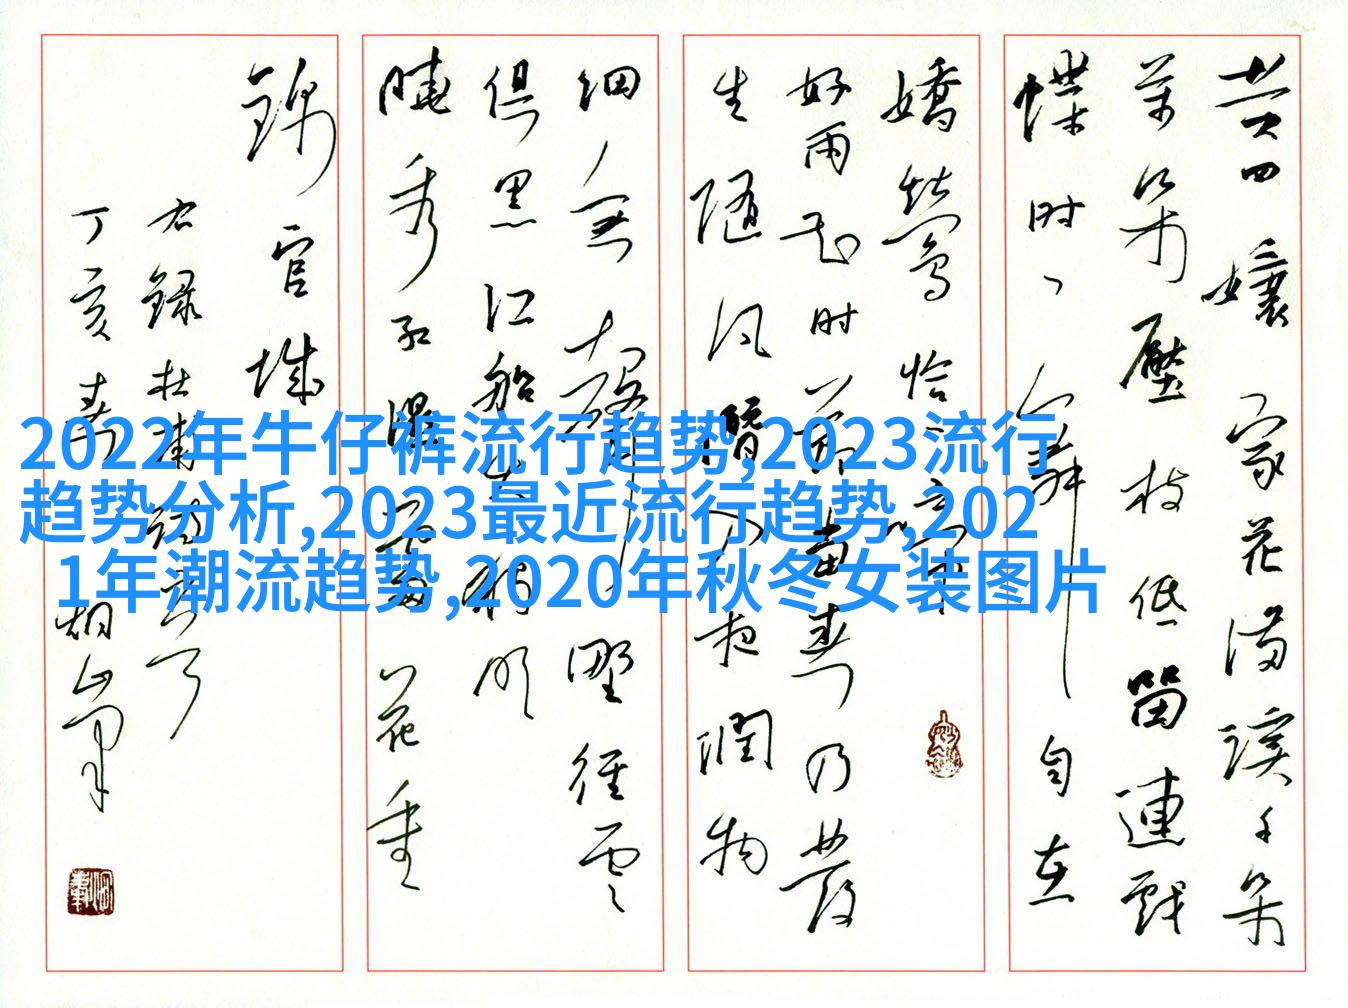 黄四孃家花满溪千朵
万朵壓枝低留連戲
蝶时时舞自在
嬌鶯恰恰啼
好雨知时節當春乃發
生隨风潛入夜潤物
细無聲野徑雲
俱黑江船火独明
晓看红濕處花重
錦官城
右録杜甫詩
丁亥春
2022年牛仔裤流行趋势,2023流行
趋势分析,2023最近流行趋势,202
1年潮流趋势,2020年秋冬女装图片